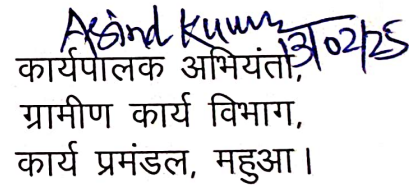 Kumar
13/02/25
कार्यपालक अभियंता,
ग्रामीण कार्य विभाग,
कार्य प्रमंडल, महुआ।